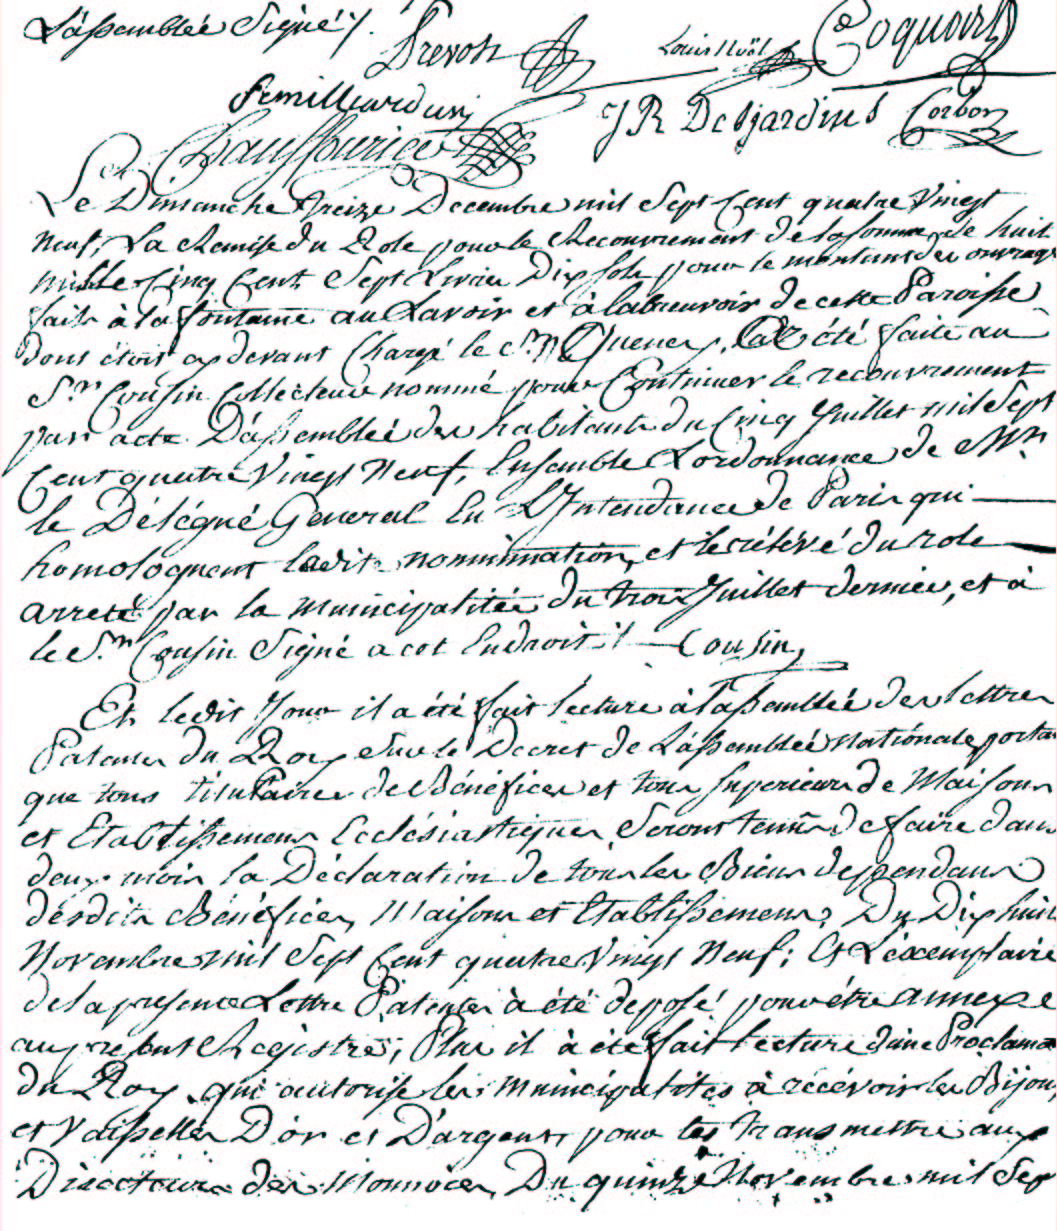 L'assemblée Signé /.
Prevost Louis Noël Coquart
Femilliard
J R Desjardins Corbon
Chauffourier
Le Dimanche treize Decembre mil Sept Cent quatre Vingt
Neuf, La Remise du Role pour le Recouvrement de la somme de huit
mille Cinq Cent Sept Livres Dix sols pour le montant des ouvrages
faits à la fontaine au Lavoir et à labreuvoir de cette Paroisse
dont étoit cy devant Chargé le S.r Queney, a été faite au
S.r Cousin Collecteur nommé pour Continuer le recouvrement
par acte D'assemblée des habitants du Cinq Juillet mil Sept
Cent quatre Vingt Neuf, Ensemble Lordonnance de Mr.
le Délégué General En L'Intendance de Paris qui
homologuent ladite nommination, et le rélévé du role
arreté par la municipalitée du trois Juillet dernier, et à
le S.r Cousin Signé a cet Endroit /. Cousin
Et ledit Jour il a été fait lecture à l'assemblée des lettres
Patentes du Roy Sur le Decret de L'assemblée nationale, porta
que tous titulaires de Bénéfices et tous Superieurs de Maisons
et Etablissemens Ecclésiastiques, Seront tenus de faire dans
deux mois la Déclaration de tous les Biens dependans
desdits Bénéfices, Maisons et Etablissemens, Du Dix huit
Novembre mil Sept Cent quatre Vingt Neuf; Et L'exemplaire
de la presente Lettre Patentes à été deposé pour étre annexe
au present Registre; Plus il à été fait lecture d'une Proclama
du Roy qui autorise les municipalités à récévoir les Bijoux,
et Vaisselles D'or et D'argent, pour les transmettre aux
Directeurs des Monnoies, Du quinze Novembre mil Sep